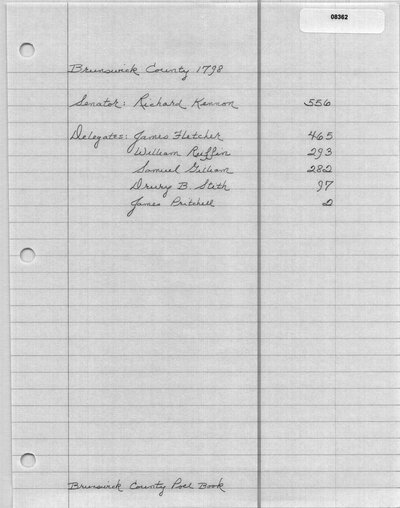 08362
Brunswick County 1798
Senator: Richard Kennon 556
Delegates: James Fletcher 465
William Ruffin 293
Samuel Gilliam 282
Drury B. Stith 97
James Pritchell 2
Brunswick County Poll Book